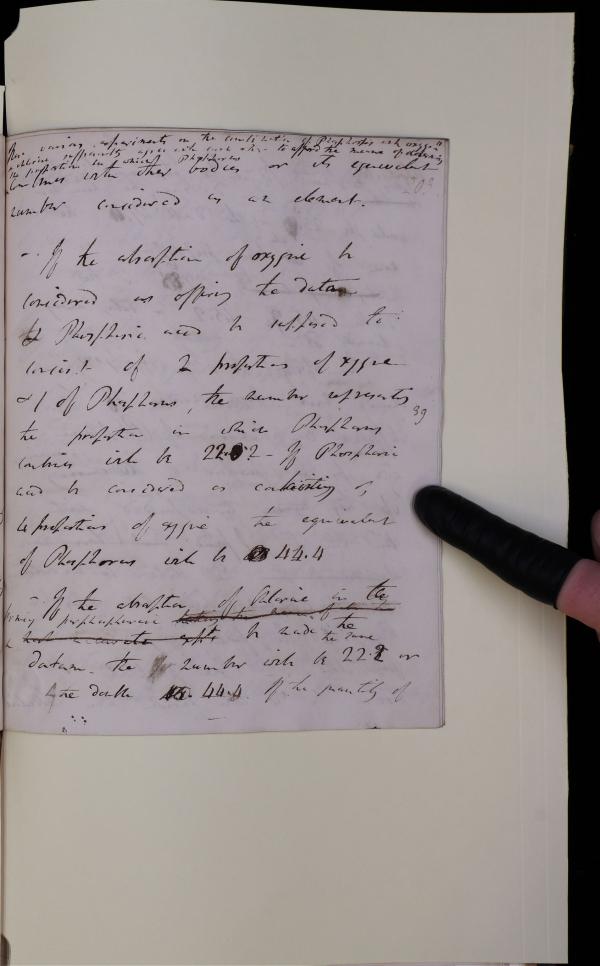 These various experiments on the combination of Phosphorus with oxygene
& chlorine sufficiently agree with each other to afford the means of deducing
the proportion in which Phosphorus
combines with other bodies or its equivalent
203
number considered as an element.
- If the absorption of oxygene be
considered as offering the data
& Phosphoric acid be supposed to
consist of 2 proportions of oxygene
& 1 of Phosphorus, the number represents
39
the proportion in which Phosphorus
combines will be 22.2 - If Phosphoric
acid be considered as consisting of
4 proportions of oxygene the equivalent
of Phosphorus will be 44.4
- If the absorption of Chlorine in the
forming perphosphorane
be made the
the same
datum. the number will be 22.2 or
the double 44.4. If the quantity of